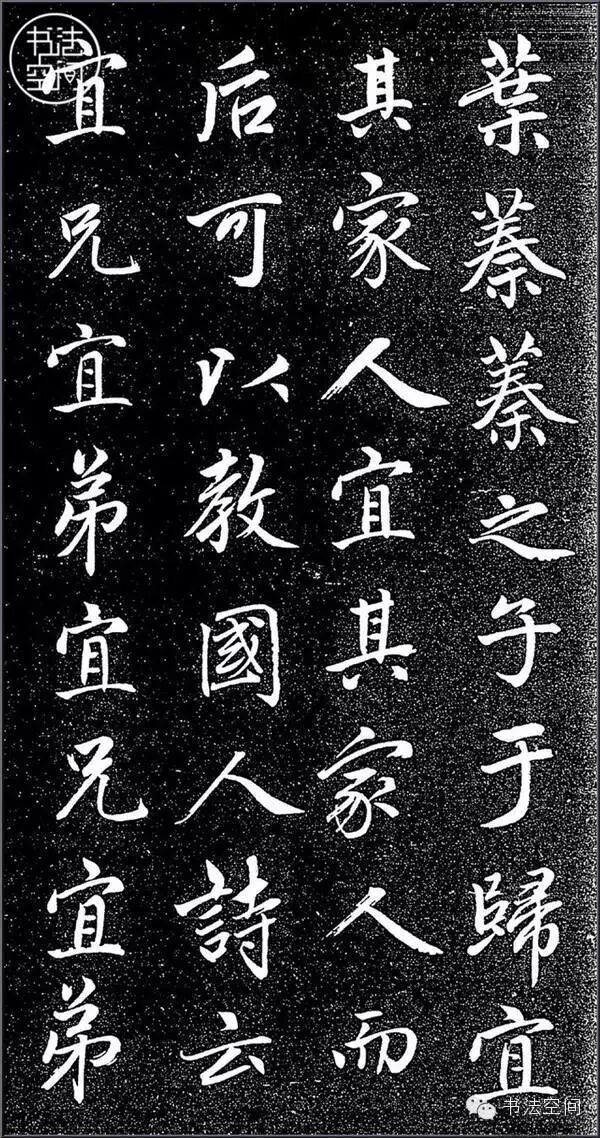 葉蓁蓁之子于歸宜
其家人宜其家人而
后可以教國人詩云
宜兄宜弟宜兄宜弟
书法
空间
书法空间